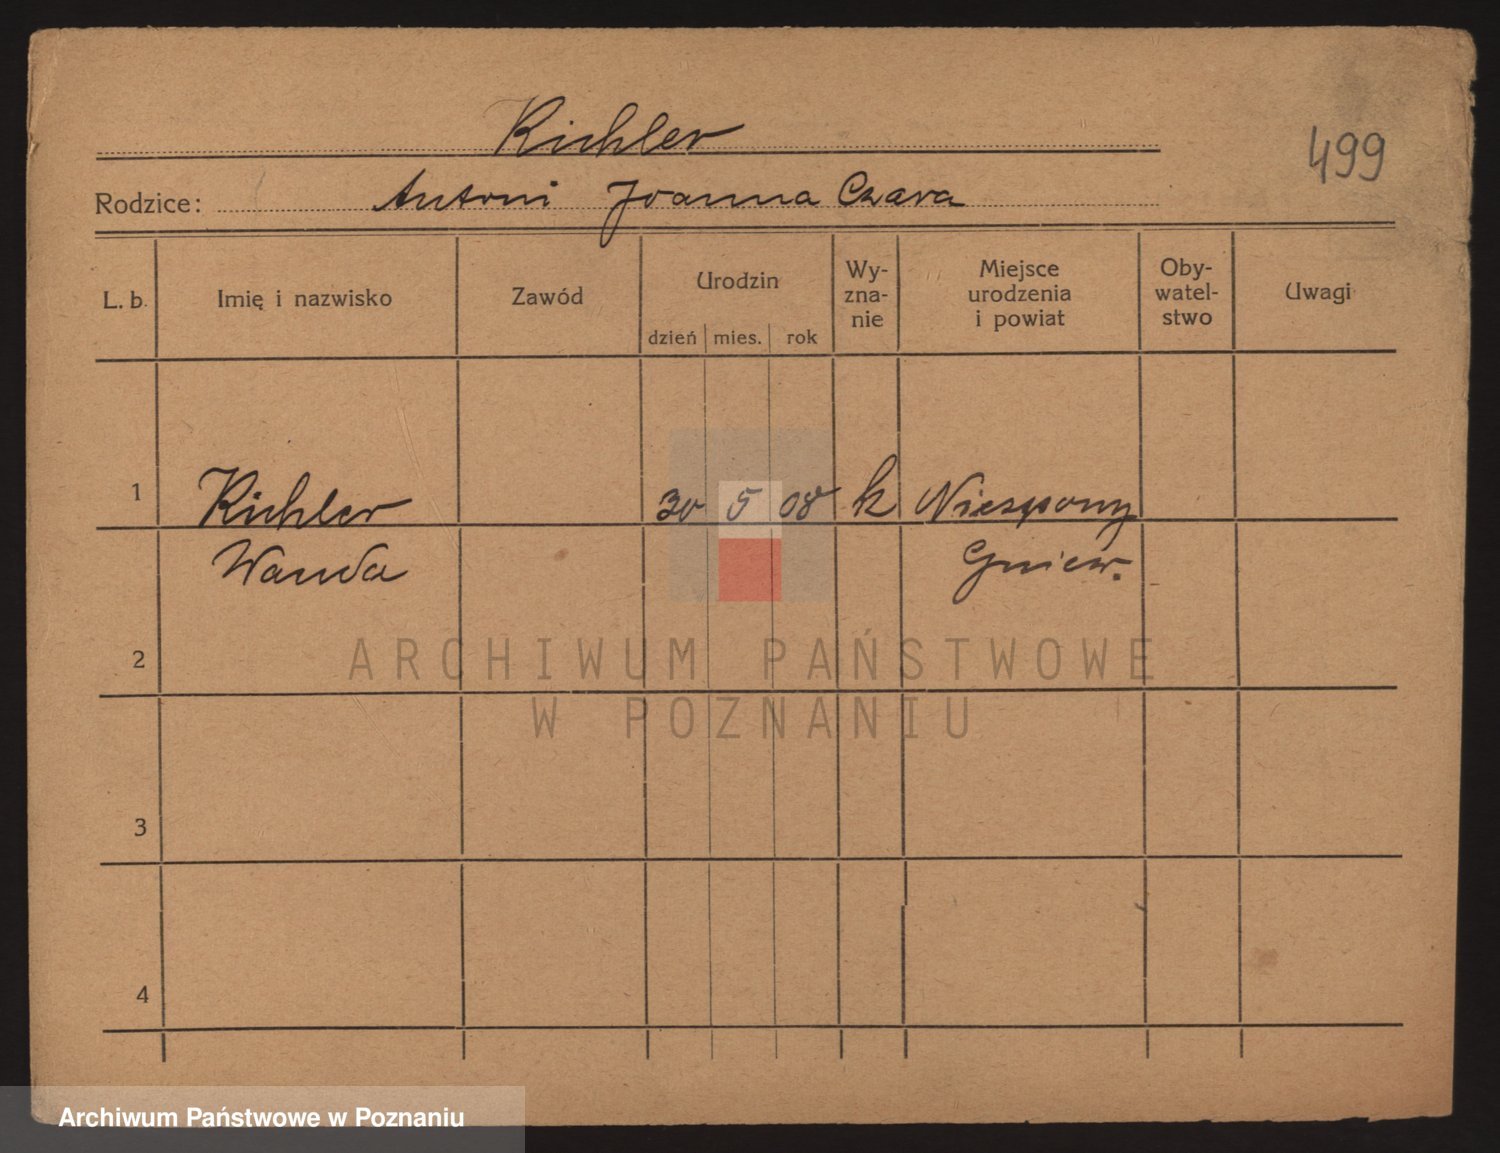 Richler
499
Rodzice: Antoni Joanna Czara
L. b. Imię i nazwisko Zawód Urodzin dzień mies. rok Wy-zna-nie Miejsce urodzenia i powiat Oby-watel-stwo Uwagi
1 Richler 30 5 08 k
Wanda Gniew.
2
ARCHIWUM PAŃSTWOWE
W POZNANIU
3
4
Archiwum Państwowe w Poznaniu